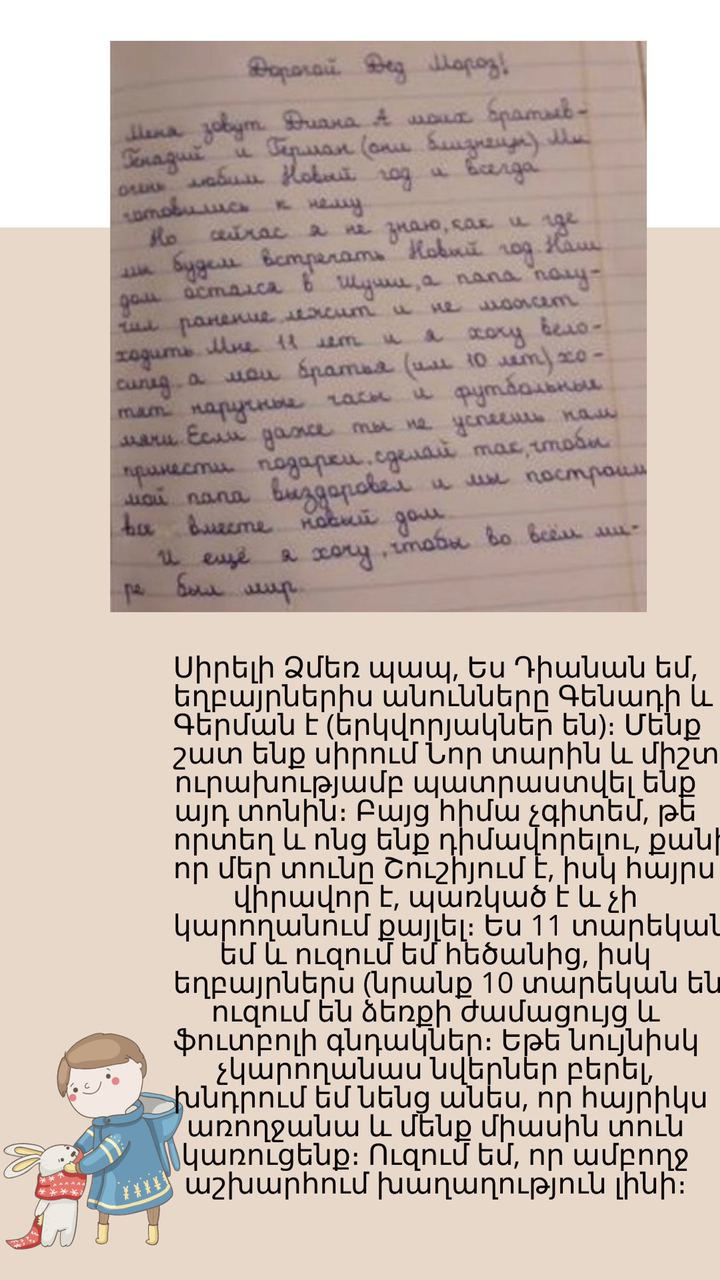 Дорогой Дед Мороз!
Меня зовут Диана А моих братьев-
Генадий и Герман (они близнецы) Мы
очень любим Новый год и всегда
готовились к нему
Но сейчас я не знаю, как и где
мы будем встречать Новый год Наш
дом остался в Шуши, а папа полу-
чил ранение, лежит и не может
ходить. Мне 11 лет и я хочу вело-
сипед, а мои братья (им 10 лет) хо-
тят наручные часы и футбольные
мячи. Если даже ты не успеешь нам
принести подарки, сделай так, чтобы
мой папа выздоровел и мы построим
все вместе новый дом
И ещё я хочу, чтобы во всём ми-
ре был мир
Սիրելի Ձմեռ պապ, Ես Դիանան եմ,
եղբայրներիս անունները Գենադի և
Գերման է (երկվորյակներ են)։ Մենք
շատ ենք սիրում Նոր տարին և միշտ
ուրախությամբ պատրաստվել ենք
այդ տոնին։ Բայց հիմա չգիտեմ, թե
որտեղ և ոնց ենք դիմավորելու, քանի
որ մեր տունը Շուշիյում է, իսկ հայրս
վիրավոր է, պառկած է և չի
կարողանում քայլել։ Ես 11 տարեկան
եմ և ուզում եմ հեծանից, իսկ
եղբայրներս (նրանք 10 տարեկան են
ուզում են ձեռքի ժամացույց և
ֆուտբոլի գնդակներ։ Եթե նույնիսկ
չկարողանաս նվերներ բերել,
խնդրում եմ նենց անես, որ հայրիկս
առողջանա և մենք միասին տուն
կառուցենք։ Ուզում եմ, որ ամբողջ
աշխարհում խաղաղություն լինի։